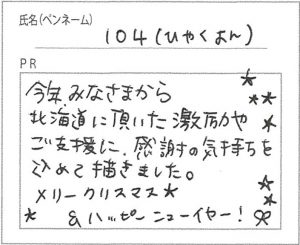 氏名(ペンネーム)
104(ひゃくよん)
PR
今年みなさまから
北海道に頂いた激励や
ご支援に、感謝の気持ちを
込めて描きました。
メリークリスマス★
& ハッピーニューイヤー!